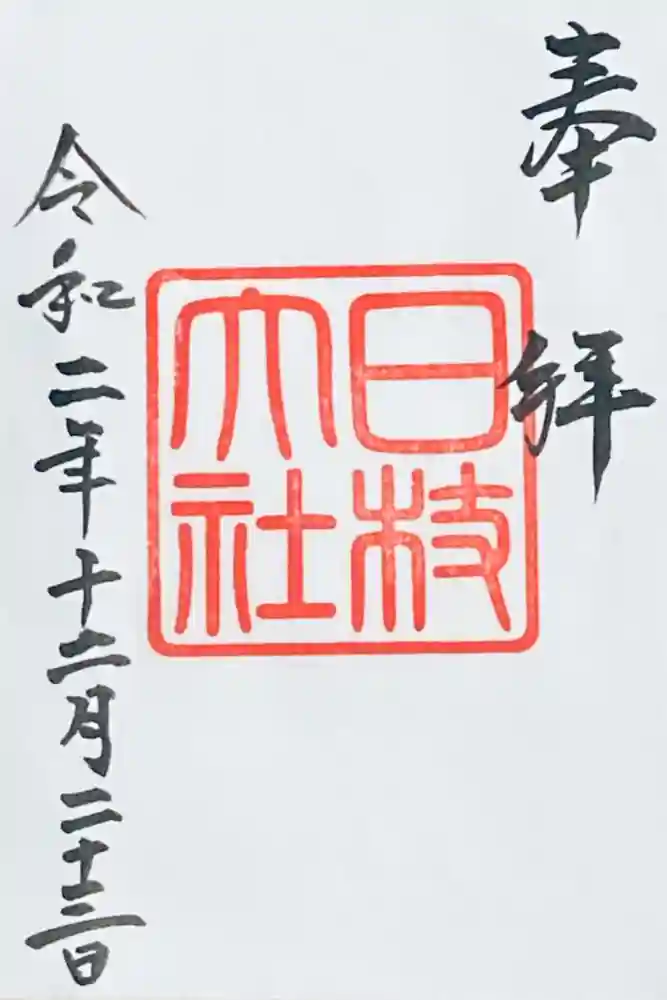 奉拝
日枝
大社
令和二年十二月二十三日